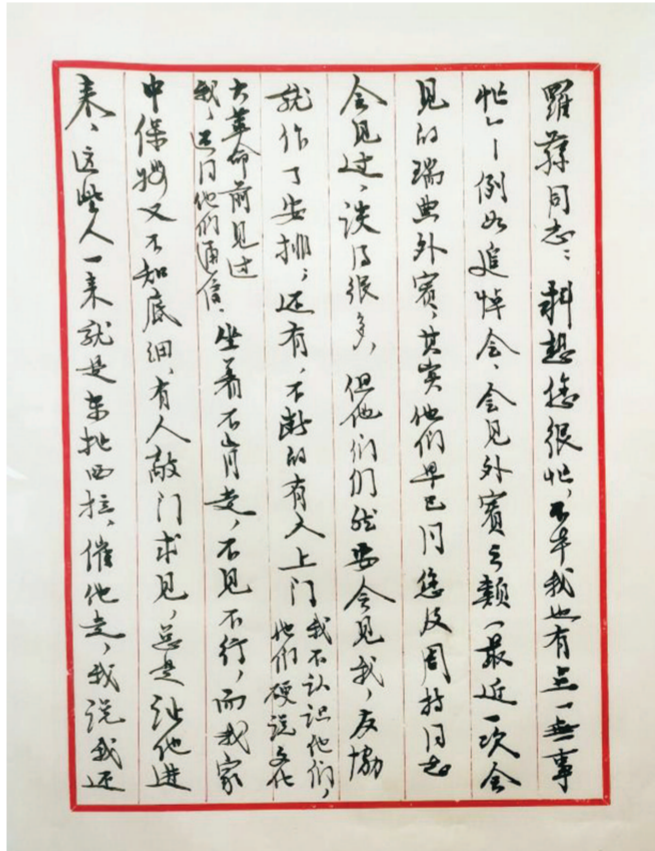 羅蓀同志：料想您很忙，不幸我也有点“無事
忙”—例如追悼会、会见外賓之类（最近一次会
见的瑞典外賓，其实他们早已同您及周扬同志
会见过，谈得很多，但他们仍然要会见我，友協
就作了安排；还有，不断的有人上门
我不认识他们，
他们硬说文化
大革命前见过
我，还同他们通信，
坐着不肯走，不见不行，而我家
中保姆又不知底细，有人敲门求见，总是让他进
来，这些人一来就是东扯西拉，催他走，我说我还